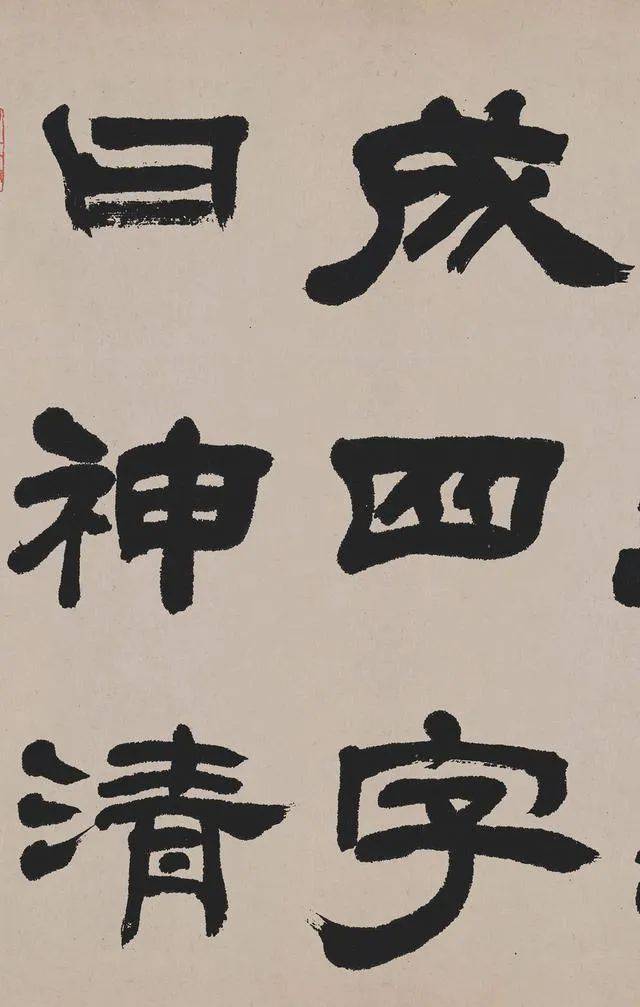 成四字
曰神清